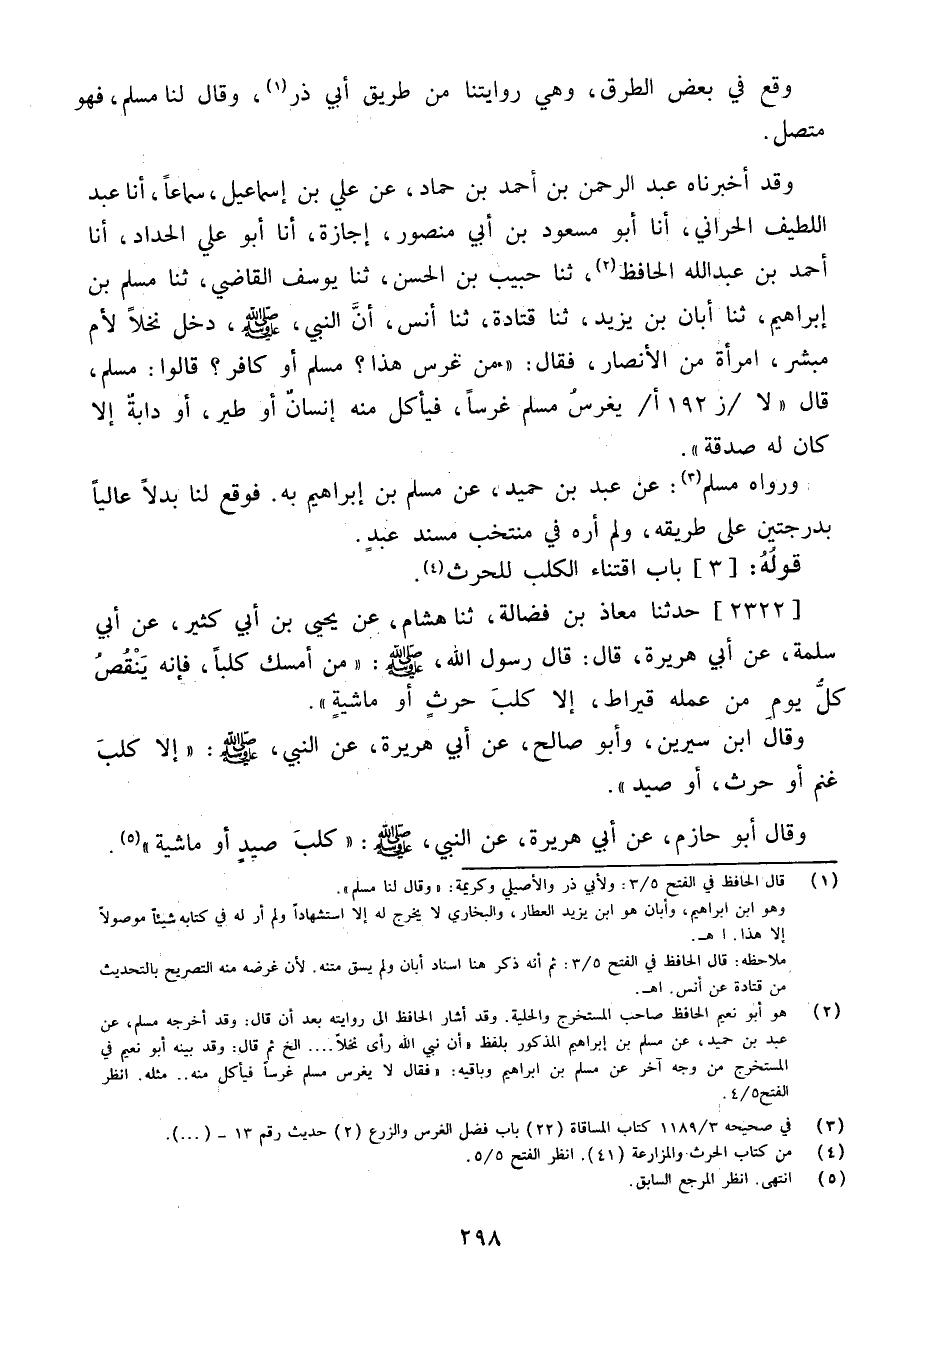 وقع في بعض الطرق، وهي روايتنا من طريق أبي ذر(١)، وقال لنا مسلم، فهو
متصل.
وقد أخبرناه عبد الرحمن بن أحمد بن حماد، عن علي بن إسماعيل، سماعاً، أنا عبد
اللطيف الحراني، أنا أبو مسعود بن أبي منصور، إجازة، أنا أبو علي الحداد، أنا
أحمد بن عبدالله الحافظ(٢)، ثنا حبيب بن الحسن، ثنا يوسف القاضي، ثنا مسلم بن
إبراهيم، ثنا أبان بن يزيد، ثنا قتادة، ثنا أنس، أنَّ النبي، ﷺ، دخل نخلاً لأم
مبشر، امرأة من الأنصار، فقال: «من غرس هذا؟ مسلم أو كافر؟ قالوا: مسلم،
قال «لا /ز ١٩٢ أ/ يغرسُ مسلم غرساً، فيأكل منه إنسانٌ أو طير، أو دابةٌ إلا
كان له صدقة».
ورواه مسلم(٣): عن عبد بن حميد، عن مسلم بن إبراهيم به. فوقع لنا بدلاً عالياً
بدرجتين على طريقه، ولم أره في منتخب مسند عبدٍ.
قولُهُ: [٣] باب اقتناء الكلب للحرث(٤).
[٢٣٢٢] حدثنا معاذ بن فضالة، ثنا هشام، عن يحيى بن أبي كثير، عن أبي
سلمة، عن أبي هريرة، قال: قال رسول الله، ﷺ: «من أمسك كلباً، فإنه يَنْقُصُ
كلَّ يومٍ من عمله قيراط، إلا كلبَ حرثٍ أو ماشيةٍ».
وقال ابن سيرين، وأبو صالح، عن أبي هريرة، عن النبي، ﷺ: «إلا كلبَ
غنم أو حرث، أو صيد».
وقال أبو حازم، عن أبي هريرة، عن النبي، ﷺ: «كلبَ صيدٍ أو ماشية»(٥).
(١) قال الحافظ في الفتح ٣/٥: ولأبي ذر والأصيلي وكريمة: «وقال لنا مسلم».
وهو ابن ابراهيم، وأبان هو ابن يزيد العطار، والبخاري لا يخرج له إلا استشهاداً ولم أر له في كتابه شيئاً موصولاً
إلا هذا. ا هـ.
ملاحظه: قال الحافظ في الفتح ٣/٥: ثم أنه ذكر هنا اسناد أبان ولم يسق متنه. لأن غرضه منه التصريح بالتحديث
من قتادة عن أنس. اهـ.
(٢) هو أبو نعيم الحافظ صاحب المستخرج والحلية. وقد أشار الحافظ الى روايته بعد أن قال: وقد أخرجه مسلم، عن
عبد بن حميد، عن مسلم بن إبراهيم المذكور بلفظ «أن نبي الله رأى نخلاً.... الخ ثم قال: وقد بينه أبو نعيم في
المستخرج من وجه آخر عن مسلم بن ابراهيم وباقيه: «فقال لا يغرس مسلم غرساً فيأكل منه.. مثله. انظر
الفتح٤/٥.
(٣) في صحيحه ١١٨٩/٣ كتاب المساقاة (٢٢) باب فضل الغرس والزرع (٢) حديث رقم ١٣ - (...).
(٤) من كتاب الحرث والمزارعة (٤١). انظر الفتح ٥/٥.
(٥) انتهى. انظر المرجع السابق.
٢٩٨